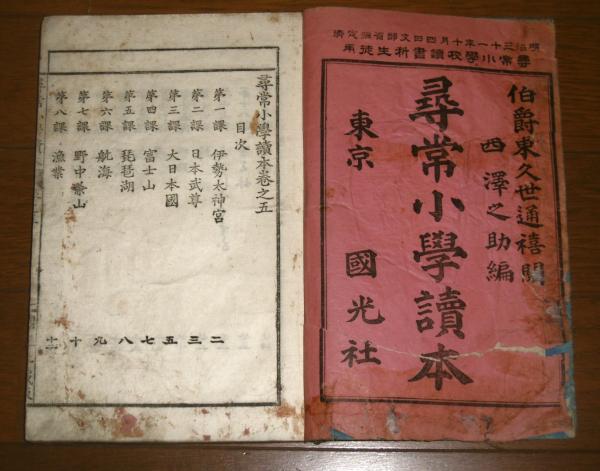 明治三十一年十月四日文部省檢定濟
尋常小學校讀書科生徒用
伯爵東久世通禧閲
西澤之助編
尋常小學讀本
東京 國光社
尋常小學讀本卷之五
目次
第一課 伊勢太神宮 二
第二課 日本武尊 三
第三課 大日本國 五
第四課 富士山 七
第五課 琵琶湖 八
第六課 航海 九
第七課 野中兼山 十
第八課 漁業 十二